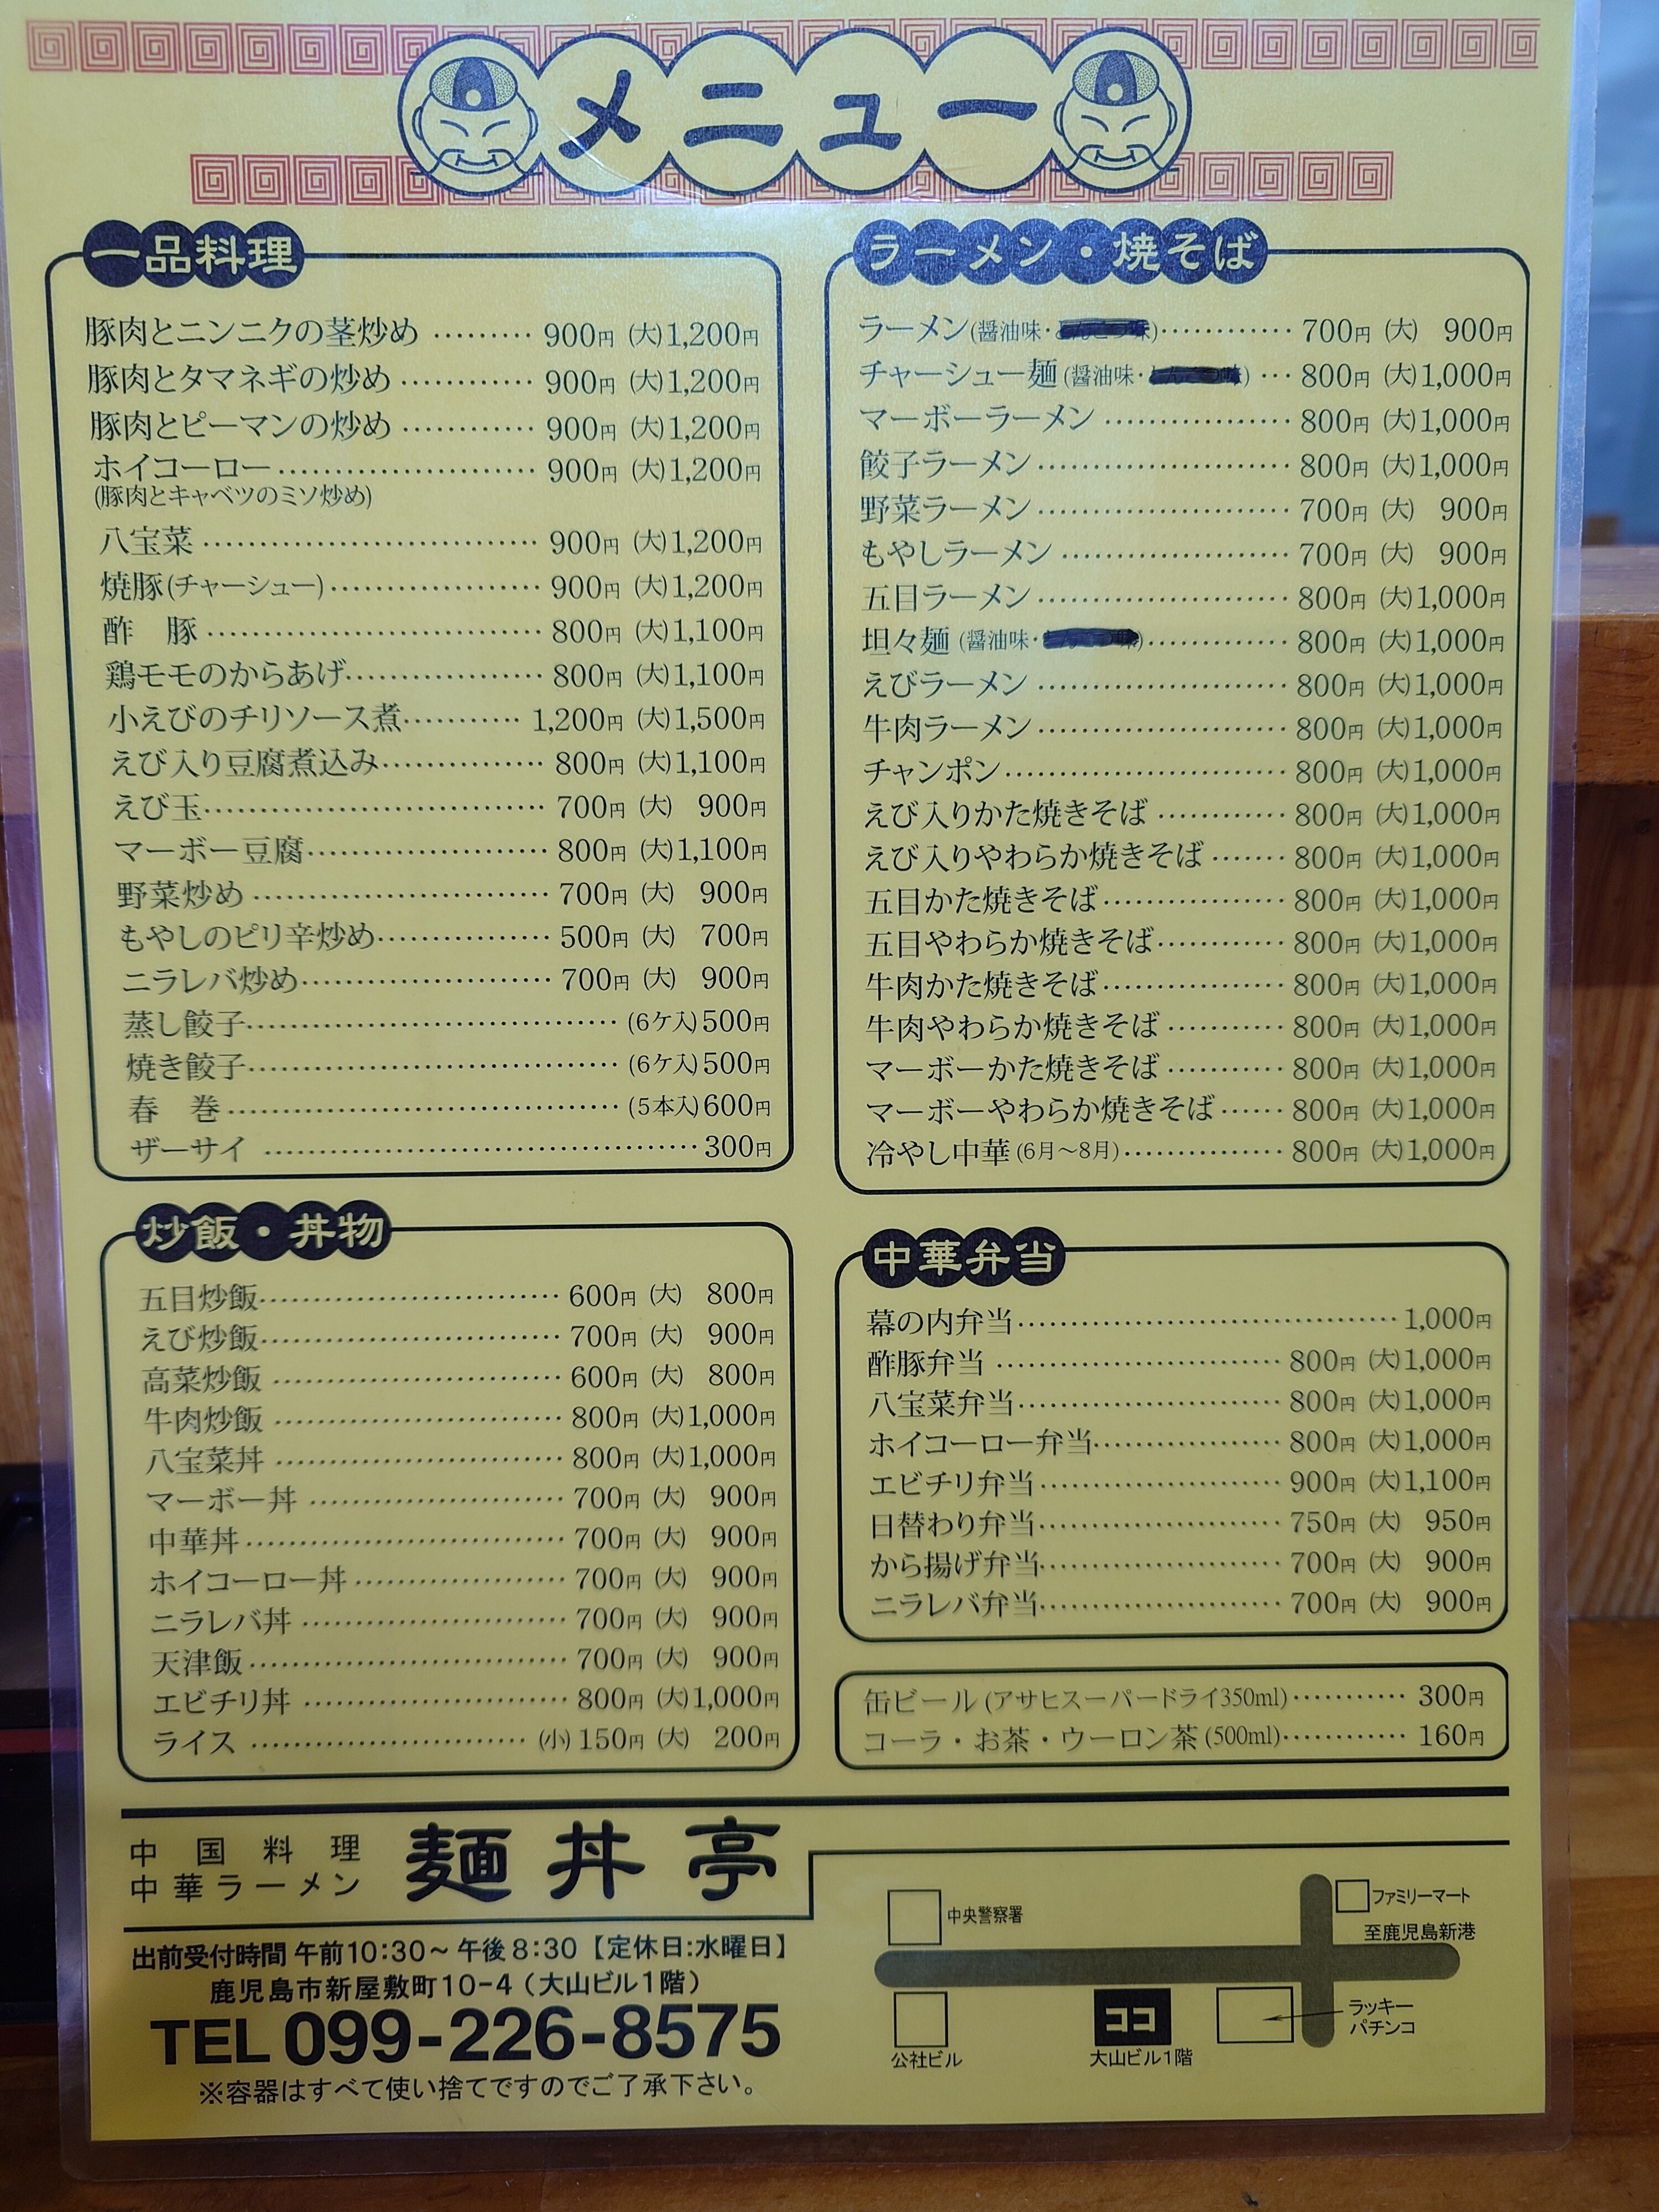 メニュー
一品料理
豚肉とニンニクの茎炒め ………… 900円 (大)1,200円
豚肉とタマネギの炒め ………… 900円 (大)1,200円
豚肉とピーマンの炒め ………… 900円 (大)1,200円
ホイコーロー………… 900円 (大)1,200円
(豚肉とキャベツのミソ炒め)
八宝菜 ………… 900円 (大)1,200円
焼豚(チャーシュー)………… 900円 (大)1,200円
酢 豚………… 800円 (大)1,100円
鶏モモのからあげ………… 800円 (大)1,100円
小えびのチリソース煮………… 1,200円 (大)1,500円
えび入り豆腐煮込み………… 800円 (大)1,100円
えび玉………… 700円 (大) 900円
マーボー豆腐………… 800円 (大)1,100円
野菜炒め ………… 700円 (大) 900円
もやしのピリ辛炒め………… 500円 (大) 700円
ニラレバ炒め………… 700円 (大) 900円
蒸し餃子………… (6ケ入)500円
焼き餃子………… (6ケ入)500円
春 巻………… (5本入)600円
ザーサイ …………300円
炒飯・丼物
五目炒飯………… 600円 (大) 800円
えび炒飯………… 700円 (大) 900円
高菜炒飯 ………… 600円 (大) 800円
牛肉炒飯 ………… 800円 (大)1,000円
八宝菜丼 ………… 800円 (大)1,000円
マーボー丼 ………… 700円 (大) 900円
中華丼………… 700円 (大) 900円
ホイコーロー丼………… 700円 (大) 900円
ニラレバ丼 ………… 700円 (大) 900円
天津飯………… 700円 (大) 900円
エビチリ丼 ………… 800円 (大)1,000円
ライス ………… (小) 150円 (大) 200円
ラーメン・焼そば
ラーメン(醤油味・とんこつ味)………… 700円 (大) 900円
チャーシュー麺(醤油味・とんこつ味) … 800円 (大)1,000円
マーボーラーメン ………… 800円 (大)1,000円
餃子ラーメン………… 800円 (大)1,000円
野菜ラーメン………… 700円 (大) 900円
もやしラーメン ………… 700円 (大) 900円
五目ラーメン………… 800円 (大)1,000円
坦々麺 (醤油味・とんこつ味)………… 800円 (大)1,000円
えびラーメン ………… 800円 (大)1,000円
牛肉ラーメン………… 800円 (大)1,000円
チャンポン………… 800円 (大)1,000円
えび入りかた焼きそば ………… 800円 (大)1,000円
えび入りやわらか焼きそば ……… 800円 (大)1,000円
五目かた焼きそば………… 800円 (大)1,000円
五目やわらか焼きそば………… 800円 (大)1,000円
牛肉かた焼きそば………… 800円 (大)1,000円
牛肉やわらか焼きそば ………… 800円 (大)1,000円
マーボーかた焼きそば ………… 800円 (大)1,000円
マーボーやわらか焼きそば…… 800円 (大)1,000円
冷やし中華(6月〜8月)………… 800円 (大)1,000円
中華弁当
幕の内弁当…………1,000円
酢豚弁当 ………… 800円 (大)1,000円
八宝菜弁当………… 800円 (大)1,000円
ホイコーロー弁当………… 800円 (大)1,000円
エビチリ弁当………… 900円 (大)1,100円
日替わり弁当………… 750円 (大) 950円
から揚げ弁当………… 700円 (大) 900円
ニラレバ弁当………… 700円 (大) 900円
缶ビール (アサヒスーパードライ350ml)………… 300円
コーラ・お茶・ウーロン茶 (500ml)………… 160円
中国料理
中華ラーメン
麺丼亭
出前受付時間 午前10:30〜午後8:30【定休日:水曜日】
鹿児島市新屋敷町10-4(大山ビル1階)
TEL 099-226-8575
※容器はすべて使い捨てですのでご了承下さい。
中央警察署
ファミリーマート
至鹿児島新港
公社ビル
ココ
大山ビル1階
ラッキー
パチンコ